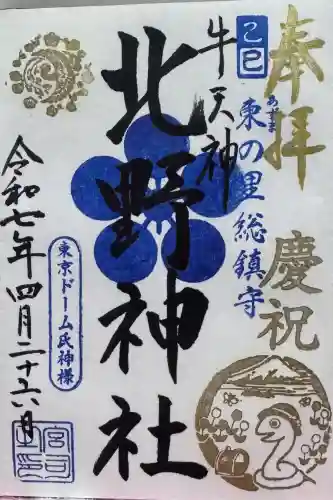 奉拝
慶祝
乙巳
東の里総鎮守
あずま
牛天神
北野神社
東京ドーム氏神様
令和七年四月二十六日
宮司